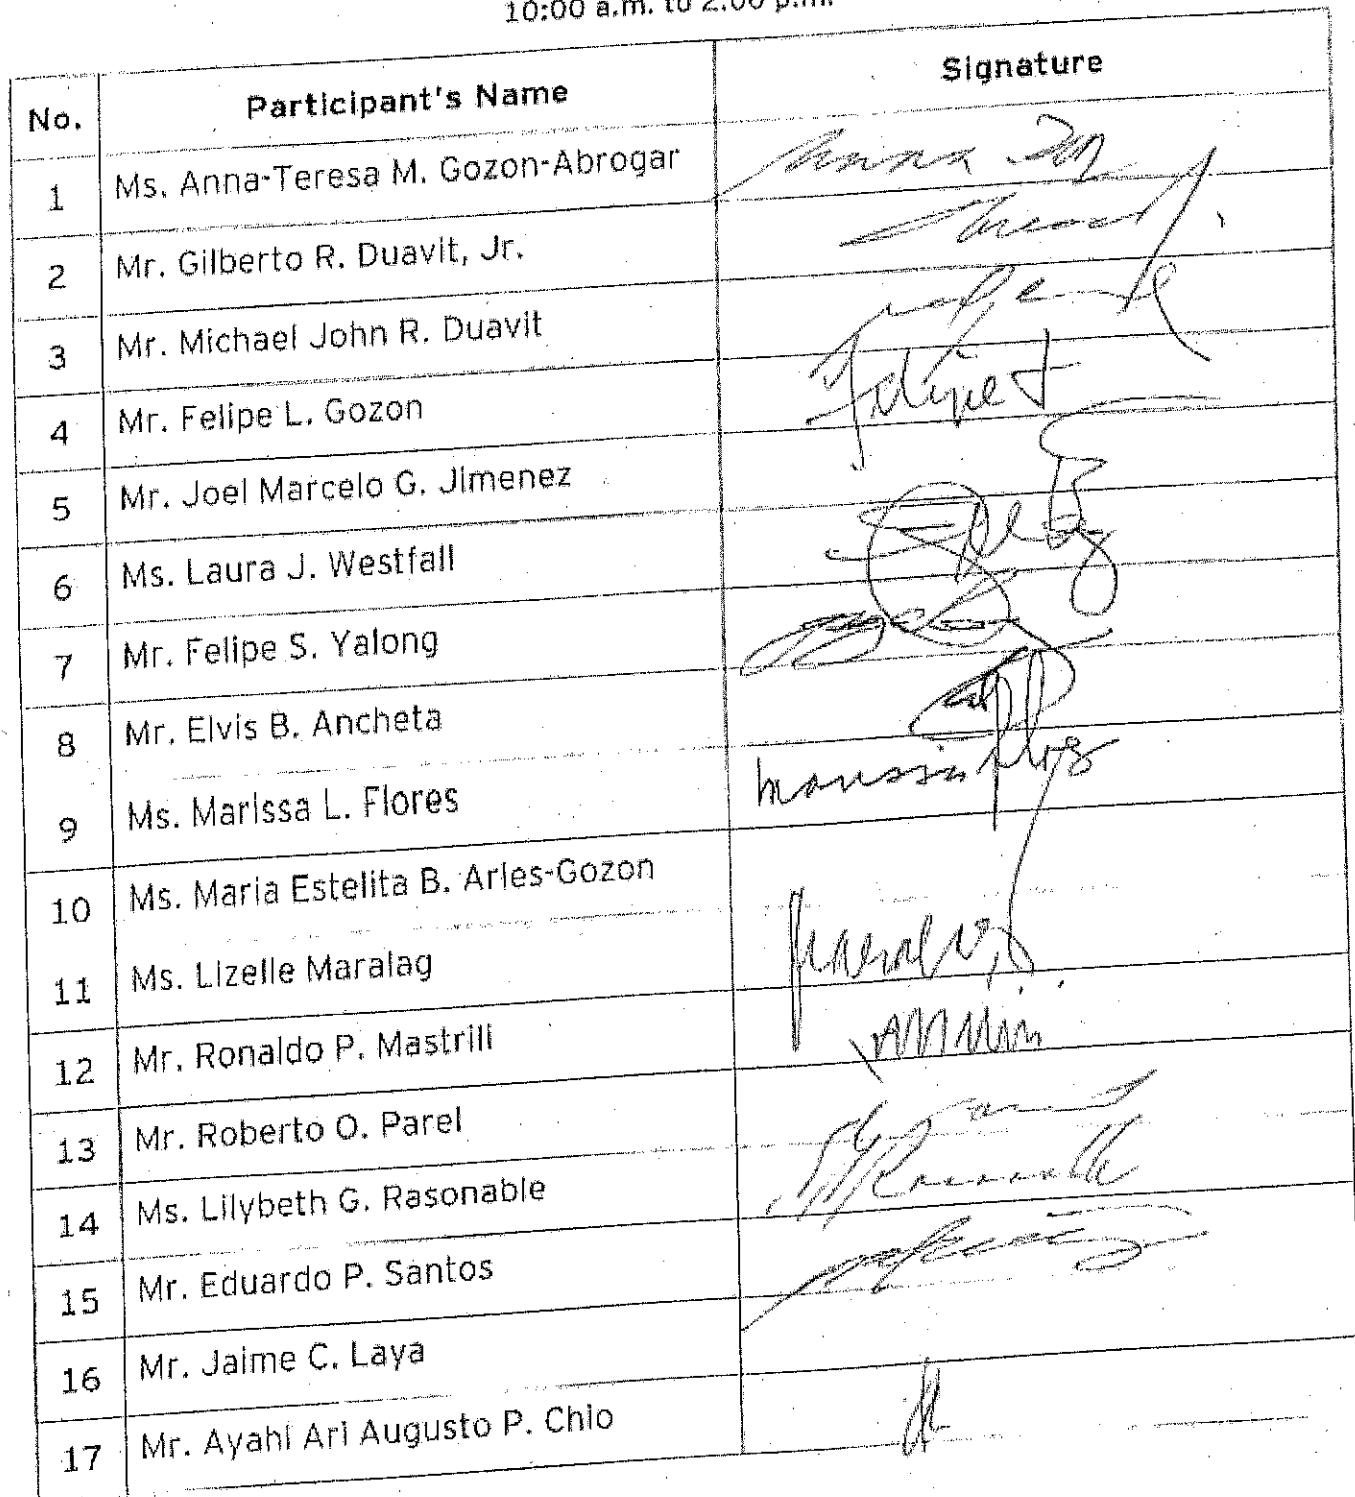 10:00 a.m. to 2:00 p.m.
No. Participant's Name Signature
1 Ms. Anna-Teresa M. Gozon-Abrogar
2 Mr. Gilberto R. Duavit, Jr.
3 Mr. Michael John R. Duavit
4 Mr. Felipe L. Gozon
5 Mr. Joel Marcelo G. Jimenez
6 Ms. Laura J. Westfall
7 Mr. Felipe S. Yalong
8 Mr. Elvis B. Ancheta
9 Ms. Marissa L. Flores
10 Ms. Maria Estelita B. Arles-Gozon
11 Ms. Lizelle Maralag
12 Mr. Ronaldo P. Mastrili
13 Mr. Roberto O. Parel
14 Ms. Lilybeth G. Rasonable
15 Mr. Eduardo P. Santos
16 Mr. Jaime C. Laya
17 Mr. Ayahl Ari Augusto P. Chio